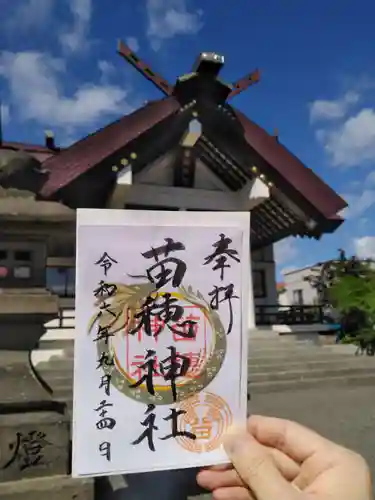 奉拝
苗穂神社
令和六年九月二十四日
苗穂神社
燈